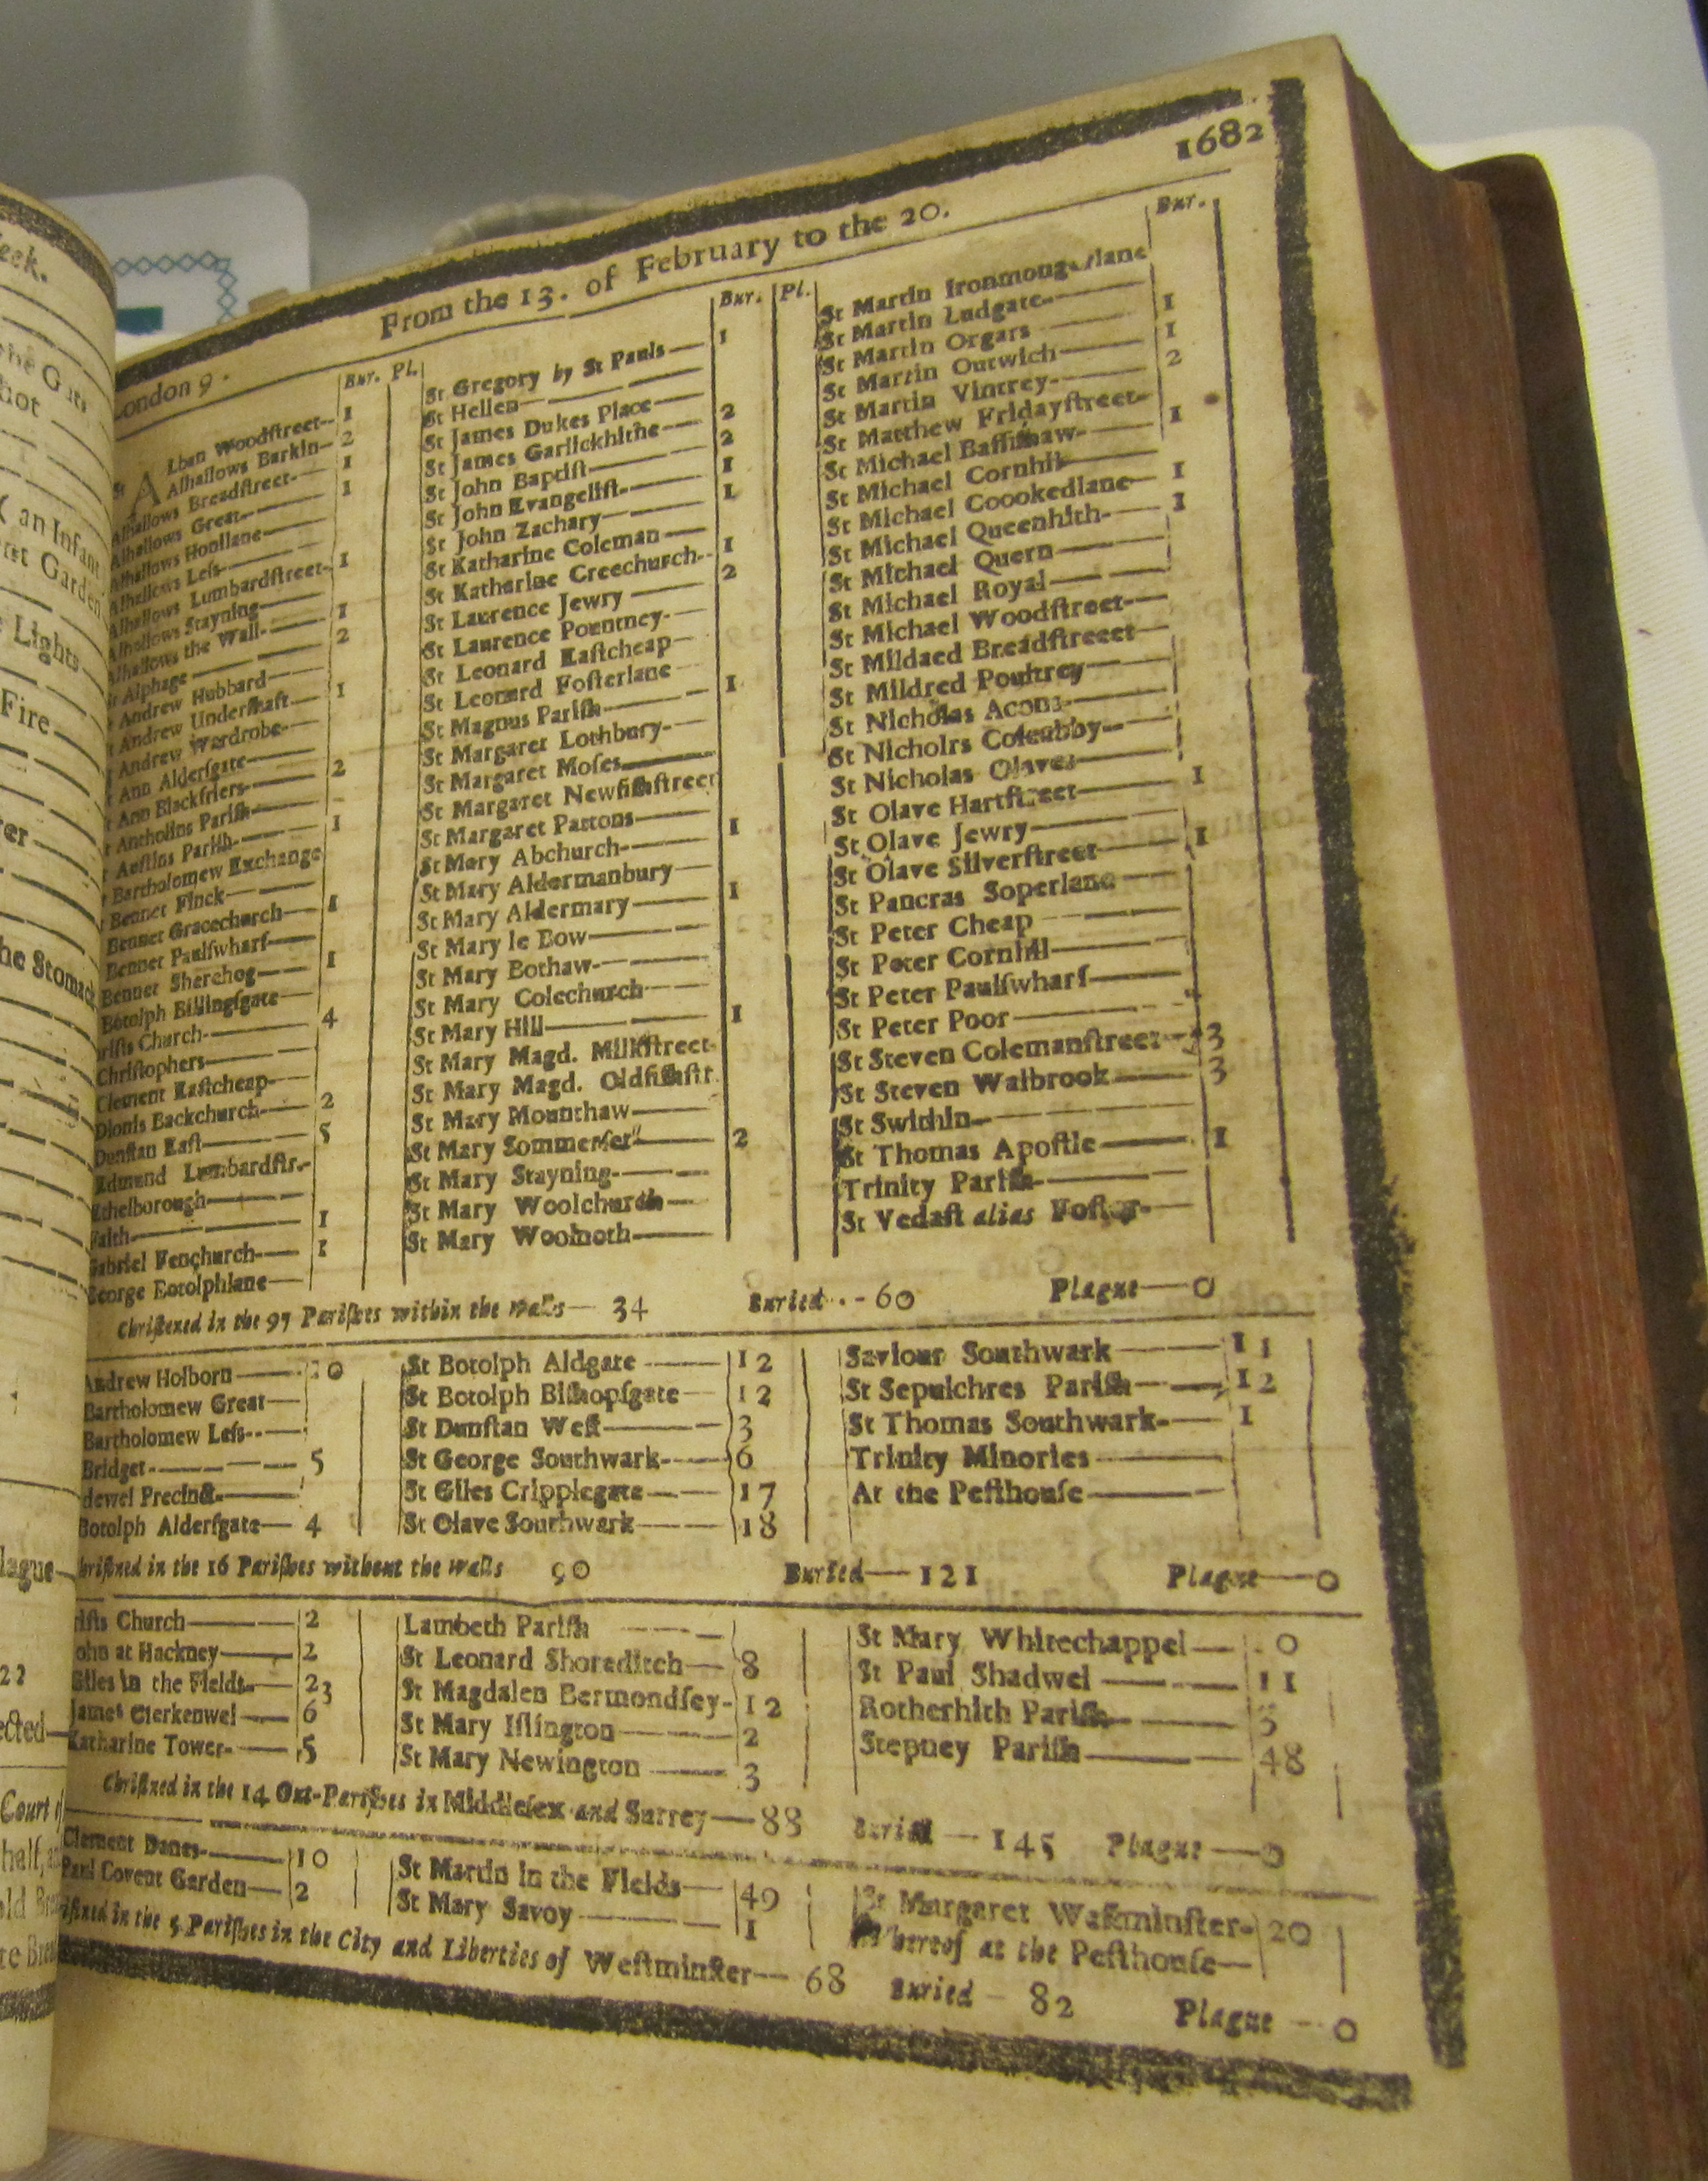 1682
From the 13. of February to the 20.
London 9.
Bur. Pl.
St ALban Woodstreet 1
Alhallows Barkin 2
Alhallows Breadstreet 1
Alhallows Great 1
Alhallows Honilane
Alhallows Less
Alhallows Lumbardstreet 1
Alhallows Stayning
Alhallows the Wall 1
St Alphage 2
Andrew Hubbard
Andrew Undershaft 1
Andrew Wardrobe
Ann Aldersgate
Ann Blackfriers 2
Antholins Parish
Austins Parish 1
Bartholomew Exchange
Bennet Finck
Bennet Gracechurch 1
Bennet Paulswharf
Bennet Sherehog 1
Botolph Billingsgate
rists Church 4
Christophers
Clement Eastcheap
Dionis Backchurch 2
Dunstan East 5
Edmund Lumbardstr.
Ethelborough
Faith 1
Gabriel Fenchurch 1
George Botolphlane
Bur. Pl.
St Gregory by St Pauls 1
St Hellen
St James Dukes Place
St James Garlickhithe 2
St John Baptist 2
St John Evangelist 1
St John Zachary 1
St Katharine Coleman
St Katharine Creechurch 1
St Laurence Jewry 2
St Laurence Pountney
St Leonard Eastcheap
St Leonard Fosterlane
St Magnus Parish 1
St Margaret Lothbury
St Margaret Moses
St Margaret Newfishstreet
St Margaret Pattons
St Mary Abchurch 1
St Mary Aldermanbury
St Mary Aldermary 1
St Mary le Bow
St Mary Bothaw
St Mary Colechurch
St Mary Hill 1
St Mary Magd. Milkstreet
St Mary Magd. Oldfishstr.
St Mary Mounthaw
St Mary Sommerset 2
St Mary Stayning
St Mary Woolchurch
St Mary Woolnoth
Bur.
St Martin Ironmongerlane
St Martin Ludgate
St Martin Orgars 1
St Martin Outwich 1
St Martin Vintrey 2
St Matthew Fridaystreet
St Michael Bassishaw 1
St Michael Cornhil
St Michael Coookedlane 1
St Michael Queenhith 1
St Michael Quern
St Michael Royal
St Michael Woodstreet
St Mildaed Breadstreeet
St Mildred Poultrey
St Nicholas Acons
St Nicholrs Coleabby
St Nicholas Olaves
St Olave Hartstreet 1
St Olave Jewry
St Olave Silverstreet 1
St Pancras Soperlane
St Peter Cheap
St Peter Cornhil
St Peter Paulswharf
St Peter Poor
St Steven Colemanstreet 3
St Steven Walbrook 3
St Swithin
St Thomas Apostle 1
Trinity Parish
St Vedast alias Foster
Christened in the 97 Parishes within the walls 34 Buried 60 Plague 0
Andrew Holborn
Bartholomew Great
Bartholomew Less
Bridget 5
dewel Precinct
Botolph Aldersgate 4
St Botolph Aldgate 12
St Botolph Bishopsgate 12
St Dunstan West 3
St George Southwark 6
St Giles Cripplegate 17
St Olave Southwark 18
Saviour Southwark 11
St Sepulchres Parish 12
St Thomas Southwark 1
Trinity Minories
At the Pesthouse
hristned in the 16 Parishes without the walls 90 Buried 121 Plague 0
rists Church 2
John at Hackney 2
Giles in the Fields 23
James Clerkenwel 6
Katharine Tower 5
Lambeth Parish
St Leonard Shoreditch 8
St Magdalen Bermondsey 12
St Mary Islington 2
St Mary Newington 3
St Mary Whitechappel
St Paul Shadwel 11
Rotherhith Parish
Stepney Parish 48
Christned in the 14 Out-Parishes in Middlesex and Surrey 88 Buried 145 Plague 0
Clement Danes 10
Paul Covent Garden 2
St Martin in the Fields 49
St Mary Savoy 1
St Margaret Westminster 20
Whereof at the Pesthouse
istned in the 5 Parishes in the City and Liberties of Westminster 68 Buried 82 Plague 0
eek.
an Infant
Lights
Fire
he Stomach
lague
Court